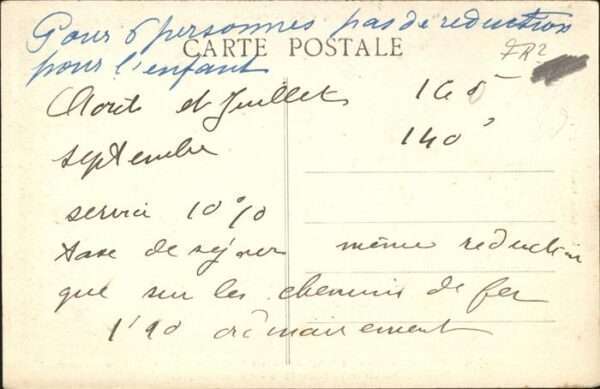 Pour 6 personnes pas de reduction
CARTE POSTALE
pour l'enfant
FR2
Août et Juillet 165
septembre 140
service 10%
taxe de séjour même reduction
que sur les chemins de fer
1'90 ordinairement